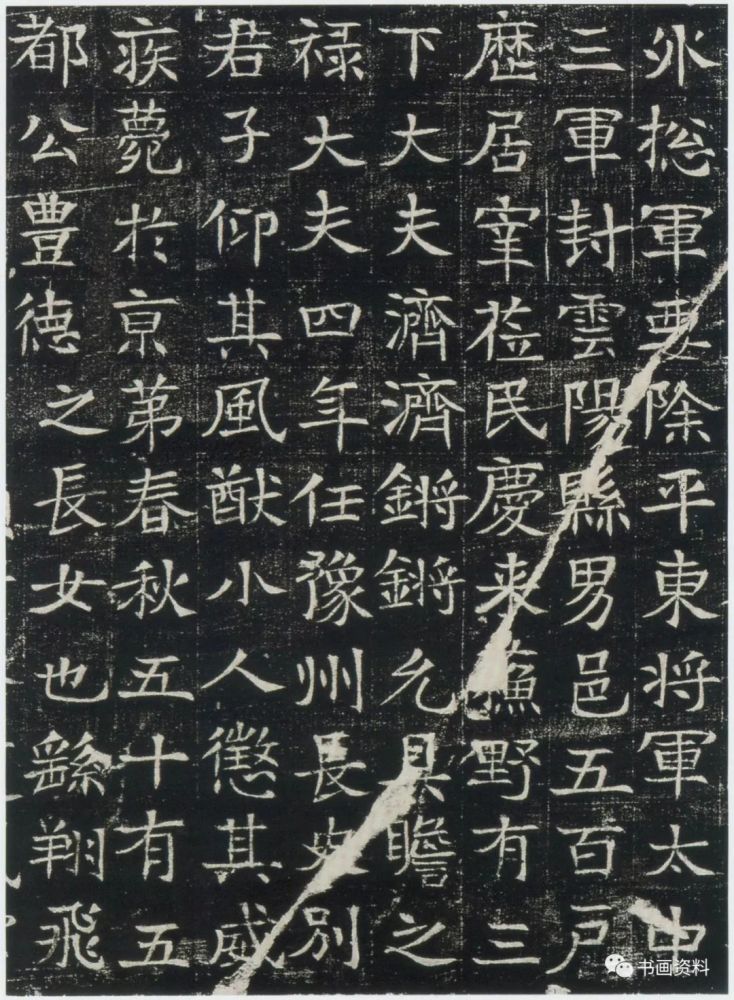 外揔軍要除平東将軍太中
三軍封雲陽縣男邑五百戸
歴居宰莅民慶来蘓野有三
下大夫濟濟鏘鏘允具瞻之
禄大夫四年任豫州長史别
君子仰其風猷小人懲其威
疾薨於京苐春秋五十有五
都公豊徳之長女也繇翔飛
书画资料